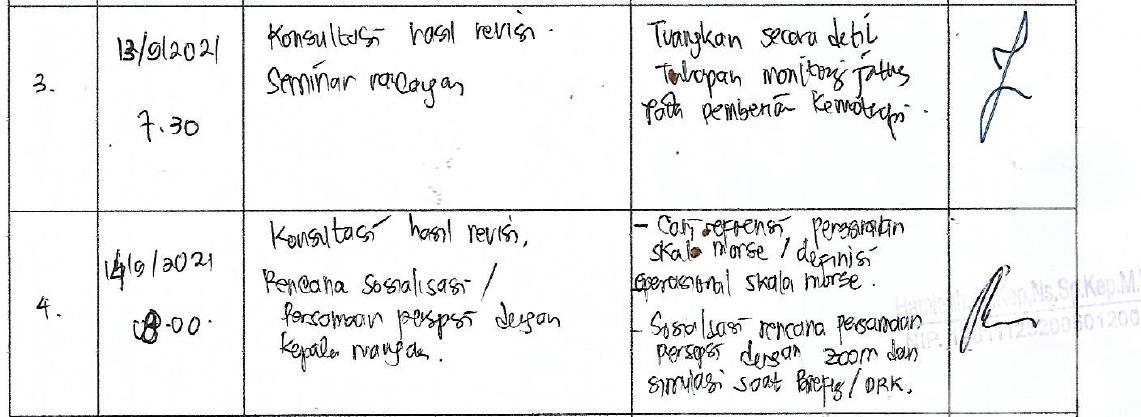 3.
13/9/2021
7.30
Konsultasi hasil revisi.
Seminar rancangan
Tuangkan secara detil
Tahapan monitoring jatuh
pada pemberian kemoterapi.
4.
14/9/2021
08.00.
Konsultasi hasil revisi,
Rencana Sosialisasi /
Persamaan persepsi dengan
kepala ruangan.
- Cari referensi
skala morse / definisi
operasional skala morse.
- Sosialisasi rencana persamaan
persepsi dengan zoom dan
simulasi saat Briefing / DRK.
Ns,Sp.Kep.M.
NIP.